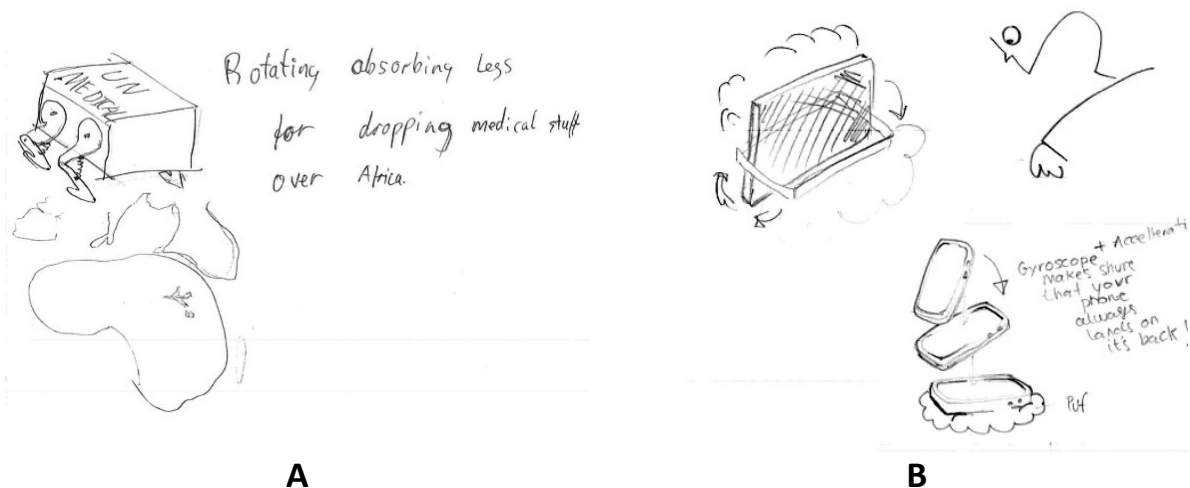 UN
MEDICAL
Rotating absorbing Legs
for dropping medical stuff
over Africa.
Gyroscope + Accellerati
makes shure
that your
phone
always
lands on
it's back!
Puf
A
B